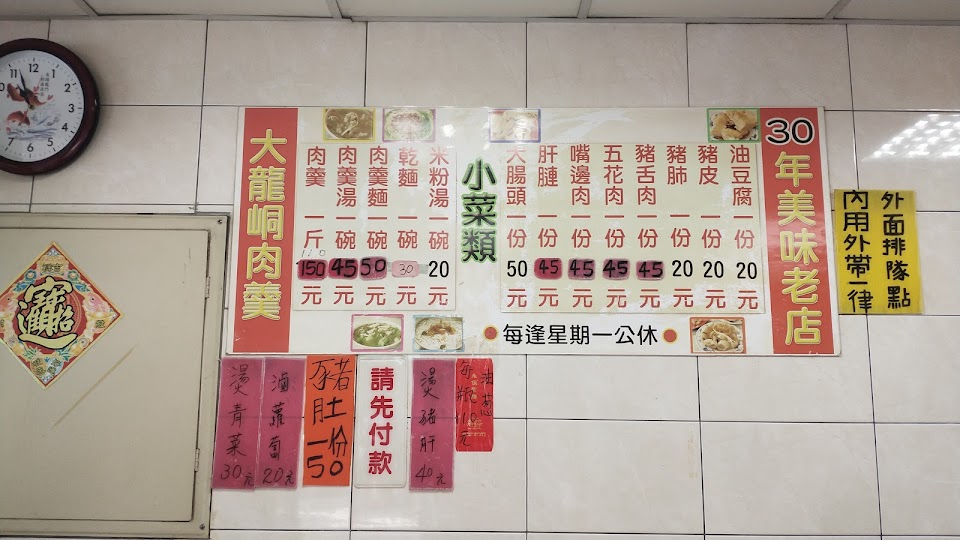 大龍峒肉羹
肉羹一斤150元
肉羹湯一碗45元
肉羹麵一碗50元
乾麵一碗30元
米粉湯一碗20元
小菜類
大腸頭一份50元
肝腱一份45元
嘴邊肉一份45元
五花肉一份45元
豬舌肉一份45元
豬肺一份20元
豬皮一份20元
油豆腐一份20元
30年美味老店
每逢星期一公休
外面排隊點
內用外帶一律
燙青菜30元
滷蘿蔔20元
豬肚一份50
請先付款
燙豬肝40元
油蔥
每瓶110元
招財進寶
12
11
10
9
8
7
6
5
4
3
2
1